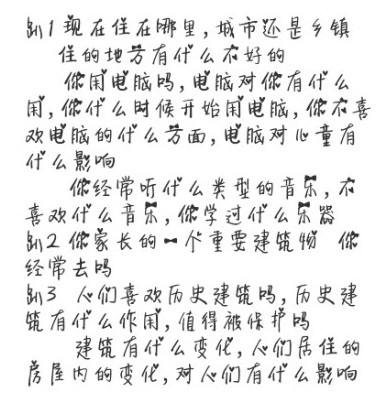 P1 现在住在哪里,城市还是乡镇
住的地方有什么不好的
你用电脑吗,电脑对你有什么
用,你什么时候开始用电脑,你不喜
欢电脑的什么方面,电脑对儿童有
什么影响
你经常听什么类型的音乐,不
喜欢什么音乐,你学过什么乐器
P2 你家长的一个重要建筑物 你
经常去吗
P3 人们喜欢历史建筑吗,历史建
筑有什么作用,值得被保护吗
建筑有什么变化,人们居住的
房屋内的变化,对人们有什么影响